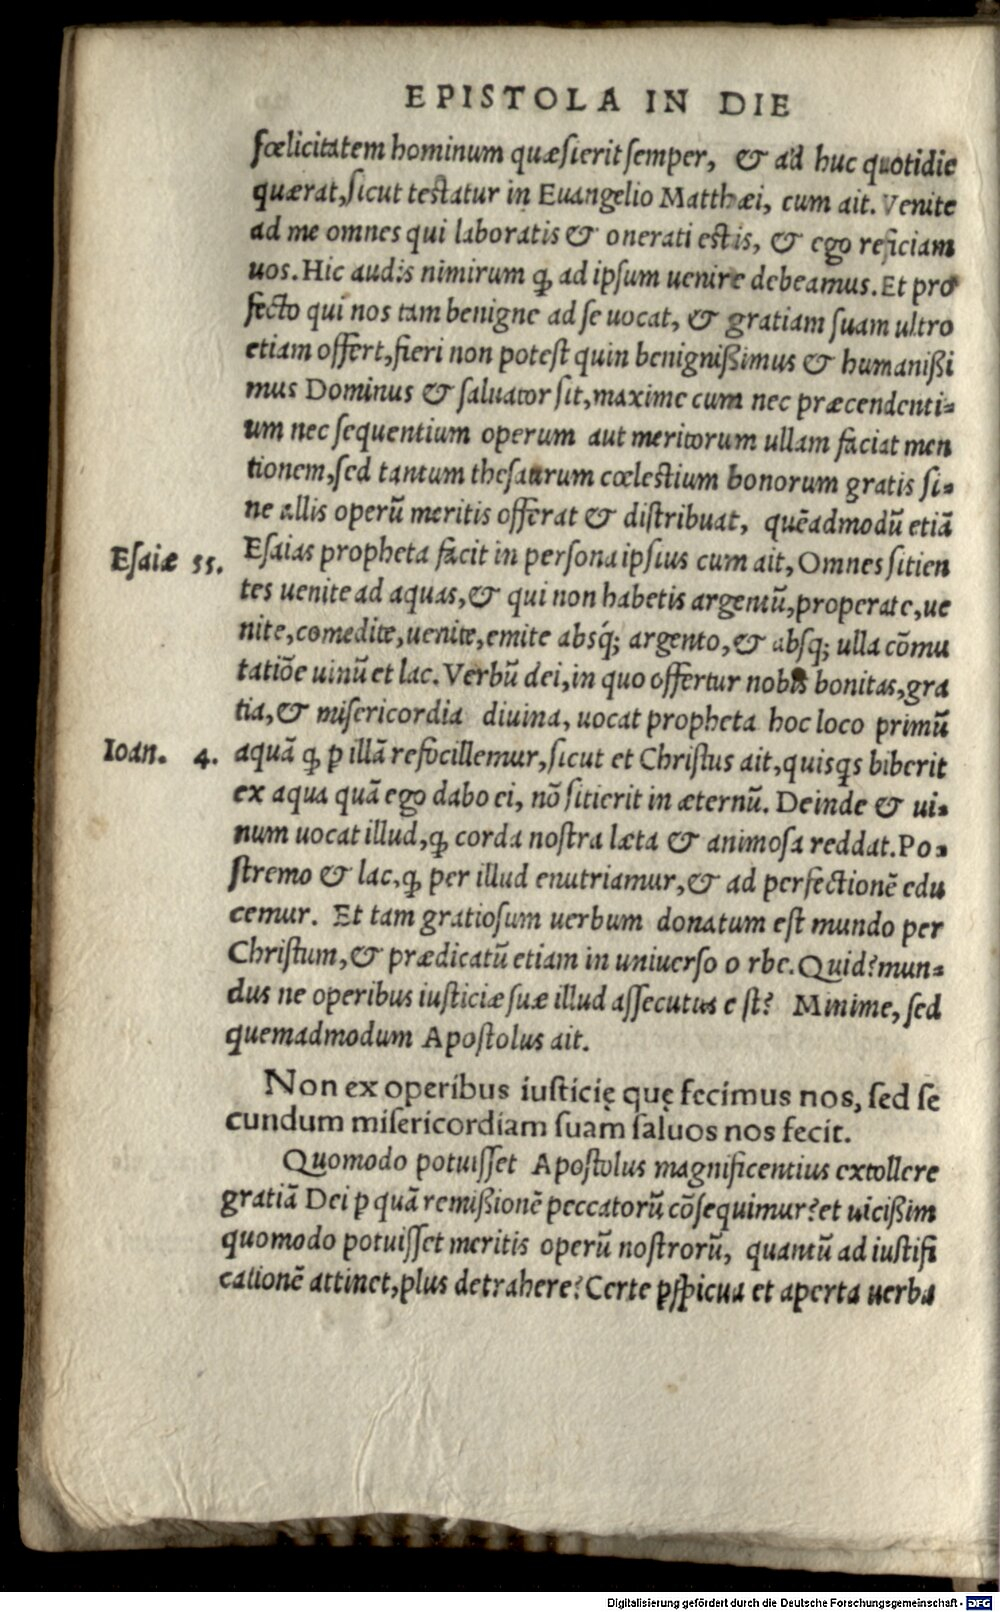 EPISTOLA IN DIE
fœlicitatem hominum quæsierit semper, & ad huc quotidie
quærat, sicut testatur in Euangelio Matthæi, cum ait. Venite
ad me omnes qui laboratis & onerati estis, & ego reficiam
uos. Hic audis nimirum ꝙ ad ipsum uenire debeamus. Et pro
fecto qui nos tam benigne ad se uocat, & gratiam suam ultro
etiam offert, fieri non potest quin benignißimus & humanißi
mus Dominus & saluator sit, maxime cum nec præcendenti-
um nec sequentium operum aut meritorum ullam faciat men
tionem, sed tantum thesaurum cœlestium bonorum gratis si-
ne allis operũ meritis offerat & distribuat, quẽadmodũ etiã
Esaiæ 55. Esaias propheta facit in persona ipsius cum ait, Omnes sitien
tes uenite ad aquas, & qui non habetis argentũ, properate, ue
nite, comedite, uenite, emite absq́; argento, & absq; ulla cõmu
tatiõe uinũ et lac. Verbũ dei, in quo offertur nobis bonitas, gra
tia, & misericordia diuina, uocat propheta hoc loco primũ
Ioan. 4. aquã ꝙ p illã refocillemur, sicut et Christus ait, quisq̃s biberit
ex aqua quã ego dabo ei, nõ sitierit in æternũ. Deinde & ui-
num uocat illud, ꝙ corda nostra læta & animosa reddat. Po-
stremo & lac, ꝙ per illud enutriamur, & ad perfectionẽ edu
cemur. Et tam gratiosum uerbum donatum est mundo per
Christum, & prædicatũ etiam in uniuerso o rbe. Quid? mun-
dus ne operibus iusticiæ suæ illud assecutus e st? Minime, sed
quemadmodum Apostolus ait.
Non ex operibus iusticię quę fecimus nos, sed se
cundum misericordiam suam saluos nos fecit.
Quomodo potuisset Apostolus magnificentius extollere
gratiã Dei ꝑ quã remißionẽ peccatorũ cõsequimur? et uicißim
quomodo potuisset meritis operũ nostrorũ, quantũ ad iustifi
cationẽ attinet, plus detrahere? Certe ꝑspicua et aperta uerba
Digitalisierung gefördert durch die Deutsche Forschungsgemeinschaft - DFG